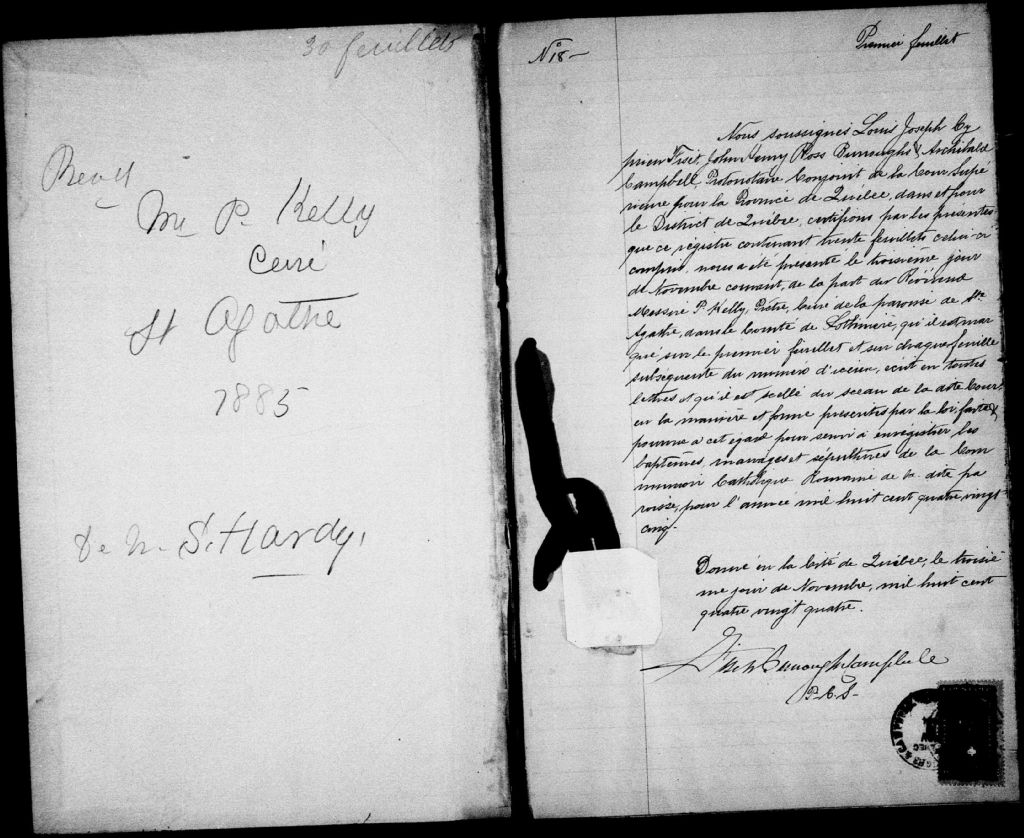 30 feuillets
Mr P. Kelly
Curé
St Agathe
1885
De M. S. Hardy,
No 18 -
Premier feuillet
Nous soussignés Louis Joseph Cy
prien Fiset, John Henry Ross Burroughs & Archibald
Campbell, Protonotaire Conjoint de la Cour Supé
rieure pour la Province de Québec, dans et pour
le District de Québec, certifions par les présentes
que ce régistre contenant trente feuillets celui-ci
compris, nous a été présenté le troisième jour
de Novembre courant, de la part du Révérend
Messire P. Kelly, Prêtre, Curé de la paroisse de Ste
Agathe, dans le Comté de Lotbinière, qu'il est mar
qué sur le premier feuillet et sur chaque feuillet
subséquents du numéro d'icelui, écrit en toutes
lettres et qu'il est scellé du sceau de la dite Cour,
en la manière et forme prescrites par la loi faite &
pourvue à cet égard pour servir à enrégistrer les
baptêmes, mariages et sépultures de la Com
munion Catholique Romaine de la dite pa
roisse, pour l'année mil huit cent quatre vingt
cinq.
Donné en la Cité de Québec, le troisiè
me jour de Novembre, mil huit cent
quatre vingt quatre.
Fiset Burroughs Campbell
P.C.S.